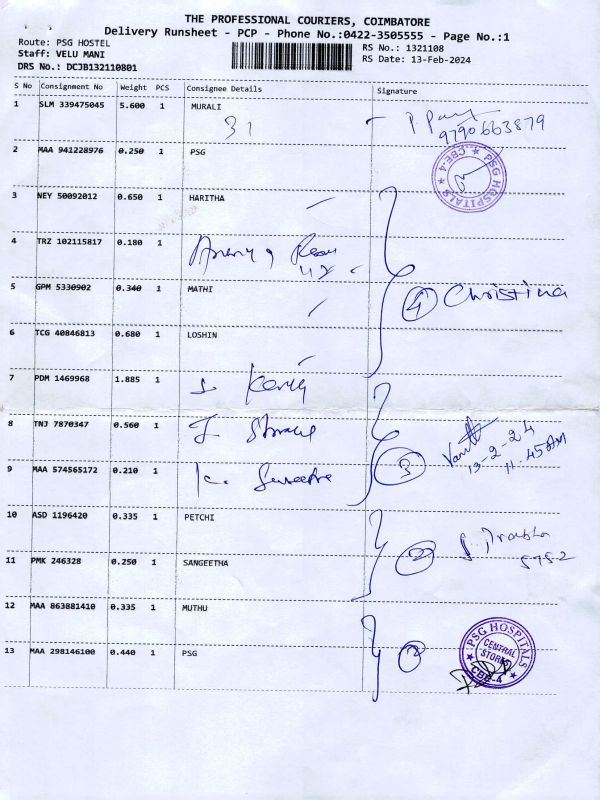 THE PROFESSIONAL COURIERS, COIMBATORE
Delivery Runsheet - PCP - Phone No.:0422-3505555 - Page No.:1
Route: PSG HOSTEL
Staff: VELU MANI
DRS No.: DCJB132110801
RS No.: 1321108
RS Date: 13-Feb-2024
S No Consignment No Weight PCS Consignee Details Signature
1 SLM 339475045 5.600 1 MURALI
31
9790663879
2 MAA 941228976 0.250 1 PSG
PSG HOSPITALS ★ CBE-4 ★
3 NEY 50092012 0.650 1 HARITHA
4 TRZ 102115817 0.180 1
5 GPM 5330902 0.340 1 MATHI
4 Christina
6 TCG 40846813 0.680 1 LOSHIN
7 PDM 1469968 1.885 1
8 TNJ 7870347 0.560 1
9 MAA 574565172 0.210 1
3
13-2-24
11.45AM
10 ASD 1196420 0.335 1 PETCHI
2
11 PMK 246328 0.250 1 SANGEETHA
5752
12 MAA 863881410 0.335 1 MUTHU
13 MAA 298146100 0.440 1 PSG
2
PSG HOSPITALS
CENTRAL
STORES
CBE-4